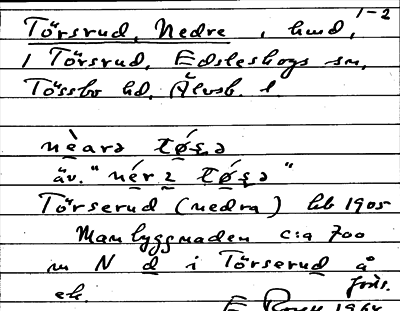 1-2
Törsrud, Nedre, hmd,
i Törsrud, Edsleskogs sn,
Tössbo hd, Älvsb. l.
nèarə tǿʂə
äv. " nérə tǿʂə "
Törserud (nedra) hb 1905
Manbyggnaden c:a 700
m N d i Törserud å
ek.
1964